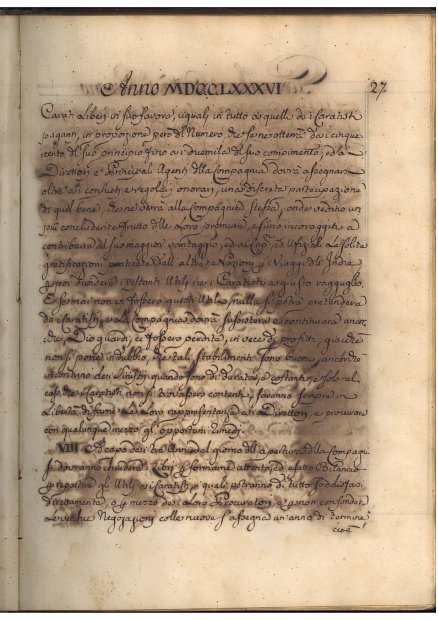 Anno MDCCLXXXVI 27
Carati Liberi in suo favore, uguali in tutto a quelli de i Caratisti
paganti, in proporzione pero del Numero che se ne otterrà dai cinque
cento del suo principio fino a i duemila del suo compimento, ed a
Direttori e Principali Agenti della Compagnia dovrà assegnarsi
oltre a i consueti e regolari onorari, una discreta partecipazione
di quel bene, che ne verrà alla Compagnia stessa, onde vedino un
più concludente frutto delle Loro premure, e sino incoraggiti a
contribuire al suo maggior vantaggio, ed a i Cap. ed Ufiziali Le solite
gratificazioni praticate dall'altre Nazioni p i Viaggi dell'India
p poi dividere i restanti Utili fra i Caratisti a giusto ragguaglio.
E se mai non vi fossero questi Utili nulla si potrà pretendere
da i Caratisti, e La Compagnia dovrà sussistere e continuare ancor
che, Dio guardi, ci fossero perdite, in vece di profitti, giacche
non si pone in dubbio, che tali stabilimenti sono buoni, ancorche
vi contino dei Sinistri quando sono di durata, e costanti, e solo nel
caso che i Caratisti non si trovassero contenti, saranno sempre in
Libertà di fare Le Loro rappresentanze a i Direttori, e procurare
con qualunque mezzo gli opportuni rimedi.
VIII Ad capo dei tre Anni dal giorno dell'apertura della Compagnia
si dovranno chiudere i Libri, e formarne attento, ed esatto Bilancio
p repartire gli Utili a i Caratisti, i quali potranno di tutto sodisfarsi
direttamente, o p mezzo de i Loro Procuratori, e p non confondere
Le vecchie Negoziazioni colle nuove s'assegna un anno di termine
cioè